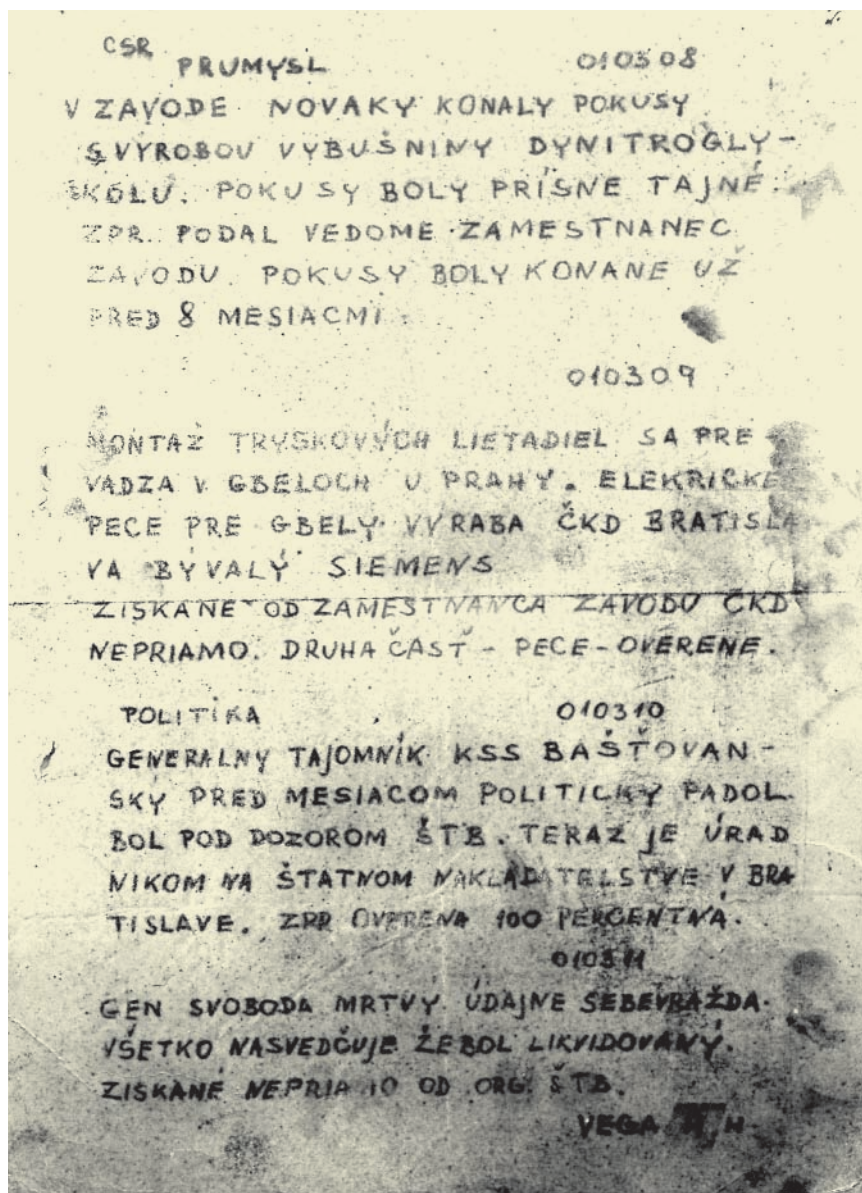 CSR
PRUMYSL 010308
V ZAVODE NOVAKY KONALY POKUSY
S VÝROBOU VYBUŠNINY DYNITROGLY-
KOLU. POKUSY BOLY PRÍSNE TAJNÉ.
ZPR. PODAL VEDOME ZAMESTNANEC
ZAVODU. POKUSY BOLY KONANE UŽ
PRED 8 MESIACMI.
010309
MONTAŽ TRYSKOVÝCH LIETADIEL SA PRE-
VADZA V GBELOCH U PRAHY. ELEKRICKE
PECE PRE GBELY VYRABA ČKD BRATISLA
VA BÝVALÝ SIEMENS
ZISKANE OD ZAMESTNANCA ZAVODU ČKD
NEPRIAMO. DRUHA ČASŤ - PECE - OVERENE.
POLITIKA 010310
GENERALNY TAJOMNÍK KSS BAŠŤOVAN-
SKÝ PRED MESIACOM POLITICKY PADOL.
BOL POD DOZOROM ŠTB. TERAZ JE ÚRAD
NIKOM NA ŠTATNOM NAKLADATELSTVE V BRA
TISLAVE. ZPR OVERENA 100 PERCENTNÁ.
010311
GEN SVOBODA MRTVÝ ÚDAJNE SEBEVRAŽDA.
VŠETKO NASVEDČUJE ŽE BOL LIKVIDOVANÝ.
ZISKANÉ OD ORG. ŠTB.
VEGA H.